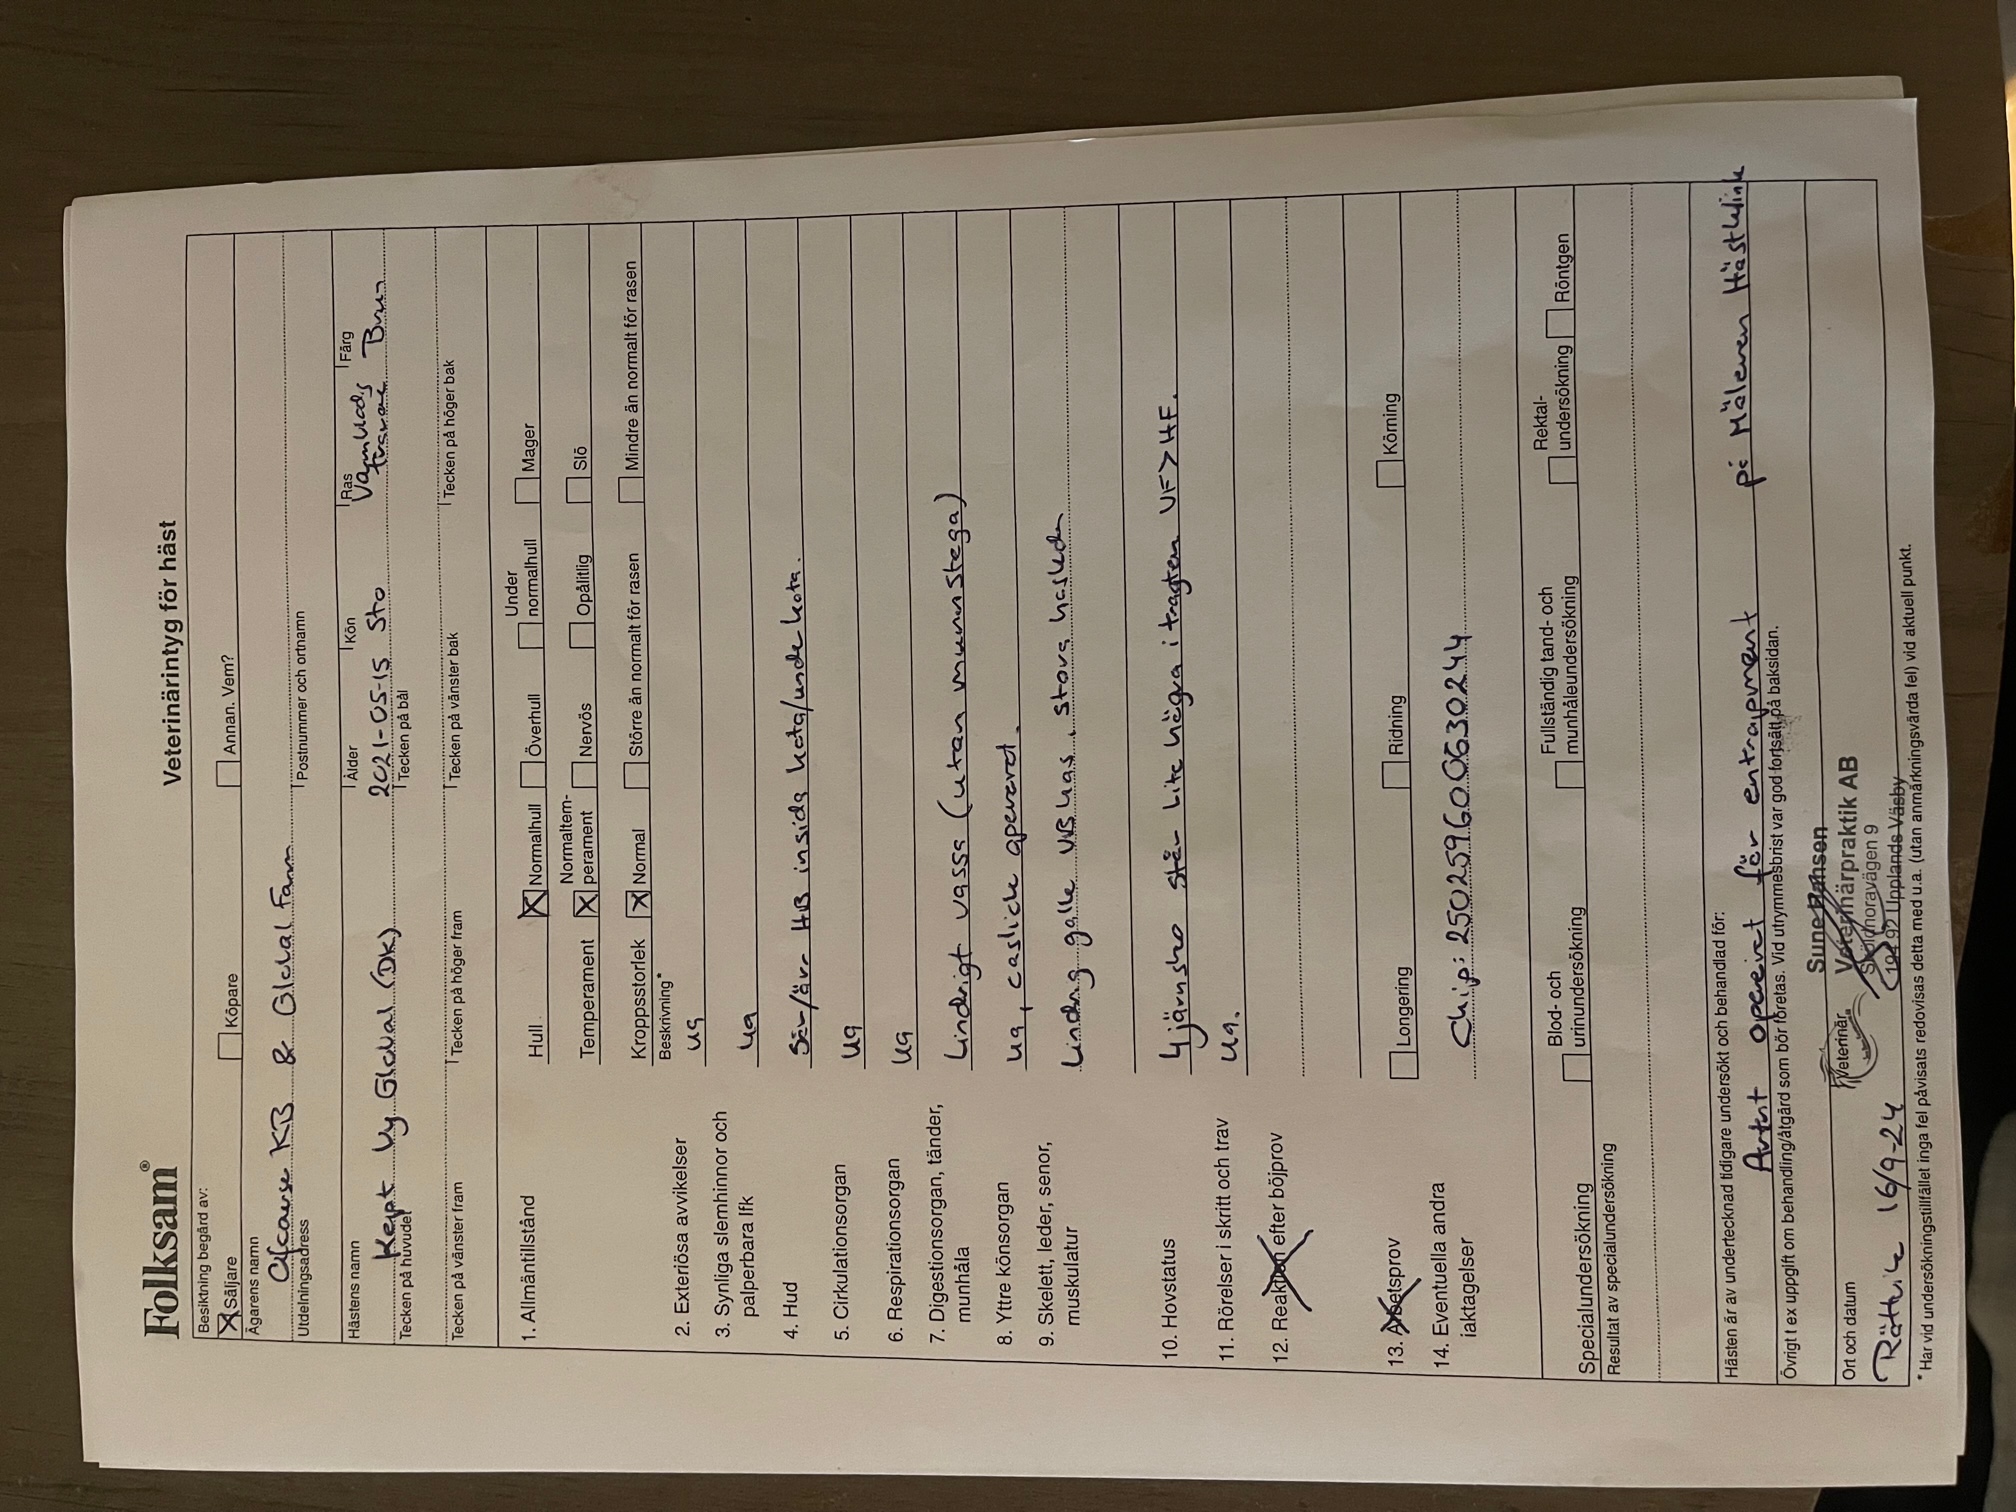 Folksam®
Veterinärintyg för häst
Besiktning begärd av:
X Säljare Köpare Annan. Vem?
Ägarens namn
KB & Global Farm
Utdelningsadress Postnummer och ortnamn
Hästens namn Ålder Kön Ras Färg
Kept Vy Global (DK) 2021-05-15 Sto Varmblodig travare Brun
Tecken på huvudet Tecken på bål
Tecken på vänster fram Tecken på höger fram Tecken på vänster bak Tecken på höger bak
1. Allmäntillstånd
Hull X Normalhull Överhull Under normalhull Mager
Temperament X Normaltem-perament Nervös Opålitlig Slö
Kroppsstorlek X Normal Större än normalt för rasen Mindre än normalt för rasen
Beskrivning*
2. Exteriösa avvikelser ua
3. Synliga slemhinnor och
palperbara lfk ua
4. Hud Sår/ärr HB insida kota/under kota.
5. Cirkulationsorgan ua
6. Respirationsorgan ua
7. Digestionsorgan, tänder,
munhåla Lindrigt vassa (utan munstega)
8. Yttre könsorgan ua, caslick opererad.
9. Skelett, leder, senor,
muskulatur Lindrig galle VB has, stora hasleder
10. Hovstatus 4 järnsko står lite högra i trakten VF>HF.
11. Rörelser i skritt och trav ua.
12. Reaktion efter böjprov
13. Arbetsprov Longering Ridning Körning
14. Eventuella andra
iaktagelser Chip: 250259600630244
Specialundersökning Blod- och urinundersökning Fullständig tand- och munhåleundersökning Rektal-undersökning Röntgen
Resultat av specialundersökning
Hästen är av undertecknad tidigare undersökt och behandlad för:
opererat för entrapment på Mälaren Hästklinik
Övrigt t ex uppgift om behandling/åtgärd som bör företas. Vid utrymmesbrist var god fortsätt på baksidan.
Ort och datum Veterinär
Rättvik 16/9-24
Sune
Veterinärpraktik AB
Skoldnoravägen 9
194 92 Upplands Väsby
* Har vid undersökningstillfället inga fel påvisats redovisas detta med u.a. (utan anmärkningsvärda fel) vid aktuell punkt.